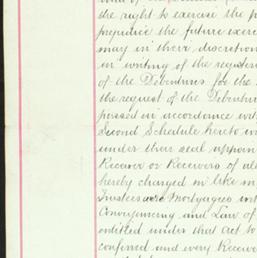 the right to exercise the p
prejudice the future exerc
may in their discretion
in writing of the register
of the Debentures for the
the request of the Debentur
passed in accordance wit
Second Schedule hereto un
under their seal appoin
Receiver or Receivers of all
hereby charged in like m
Trustees were Mortgagees wit
Conveyancing and Law of
entitled under that Act to
conferred and every Receive